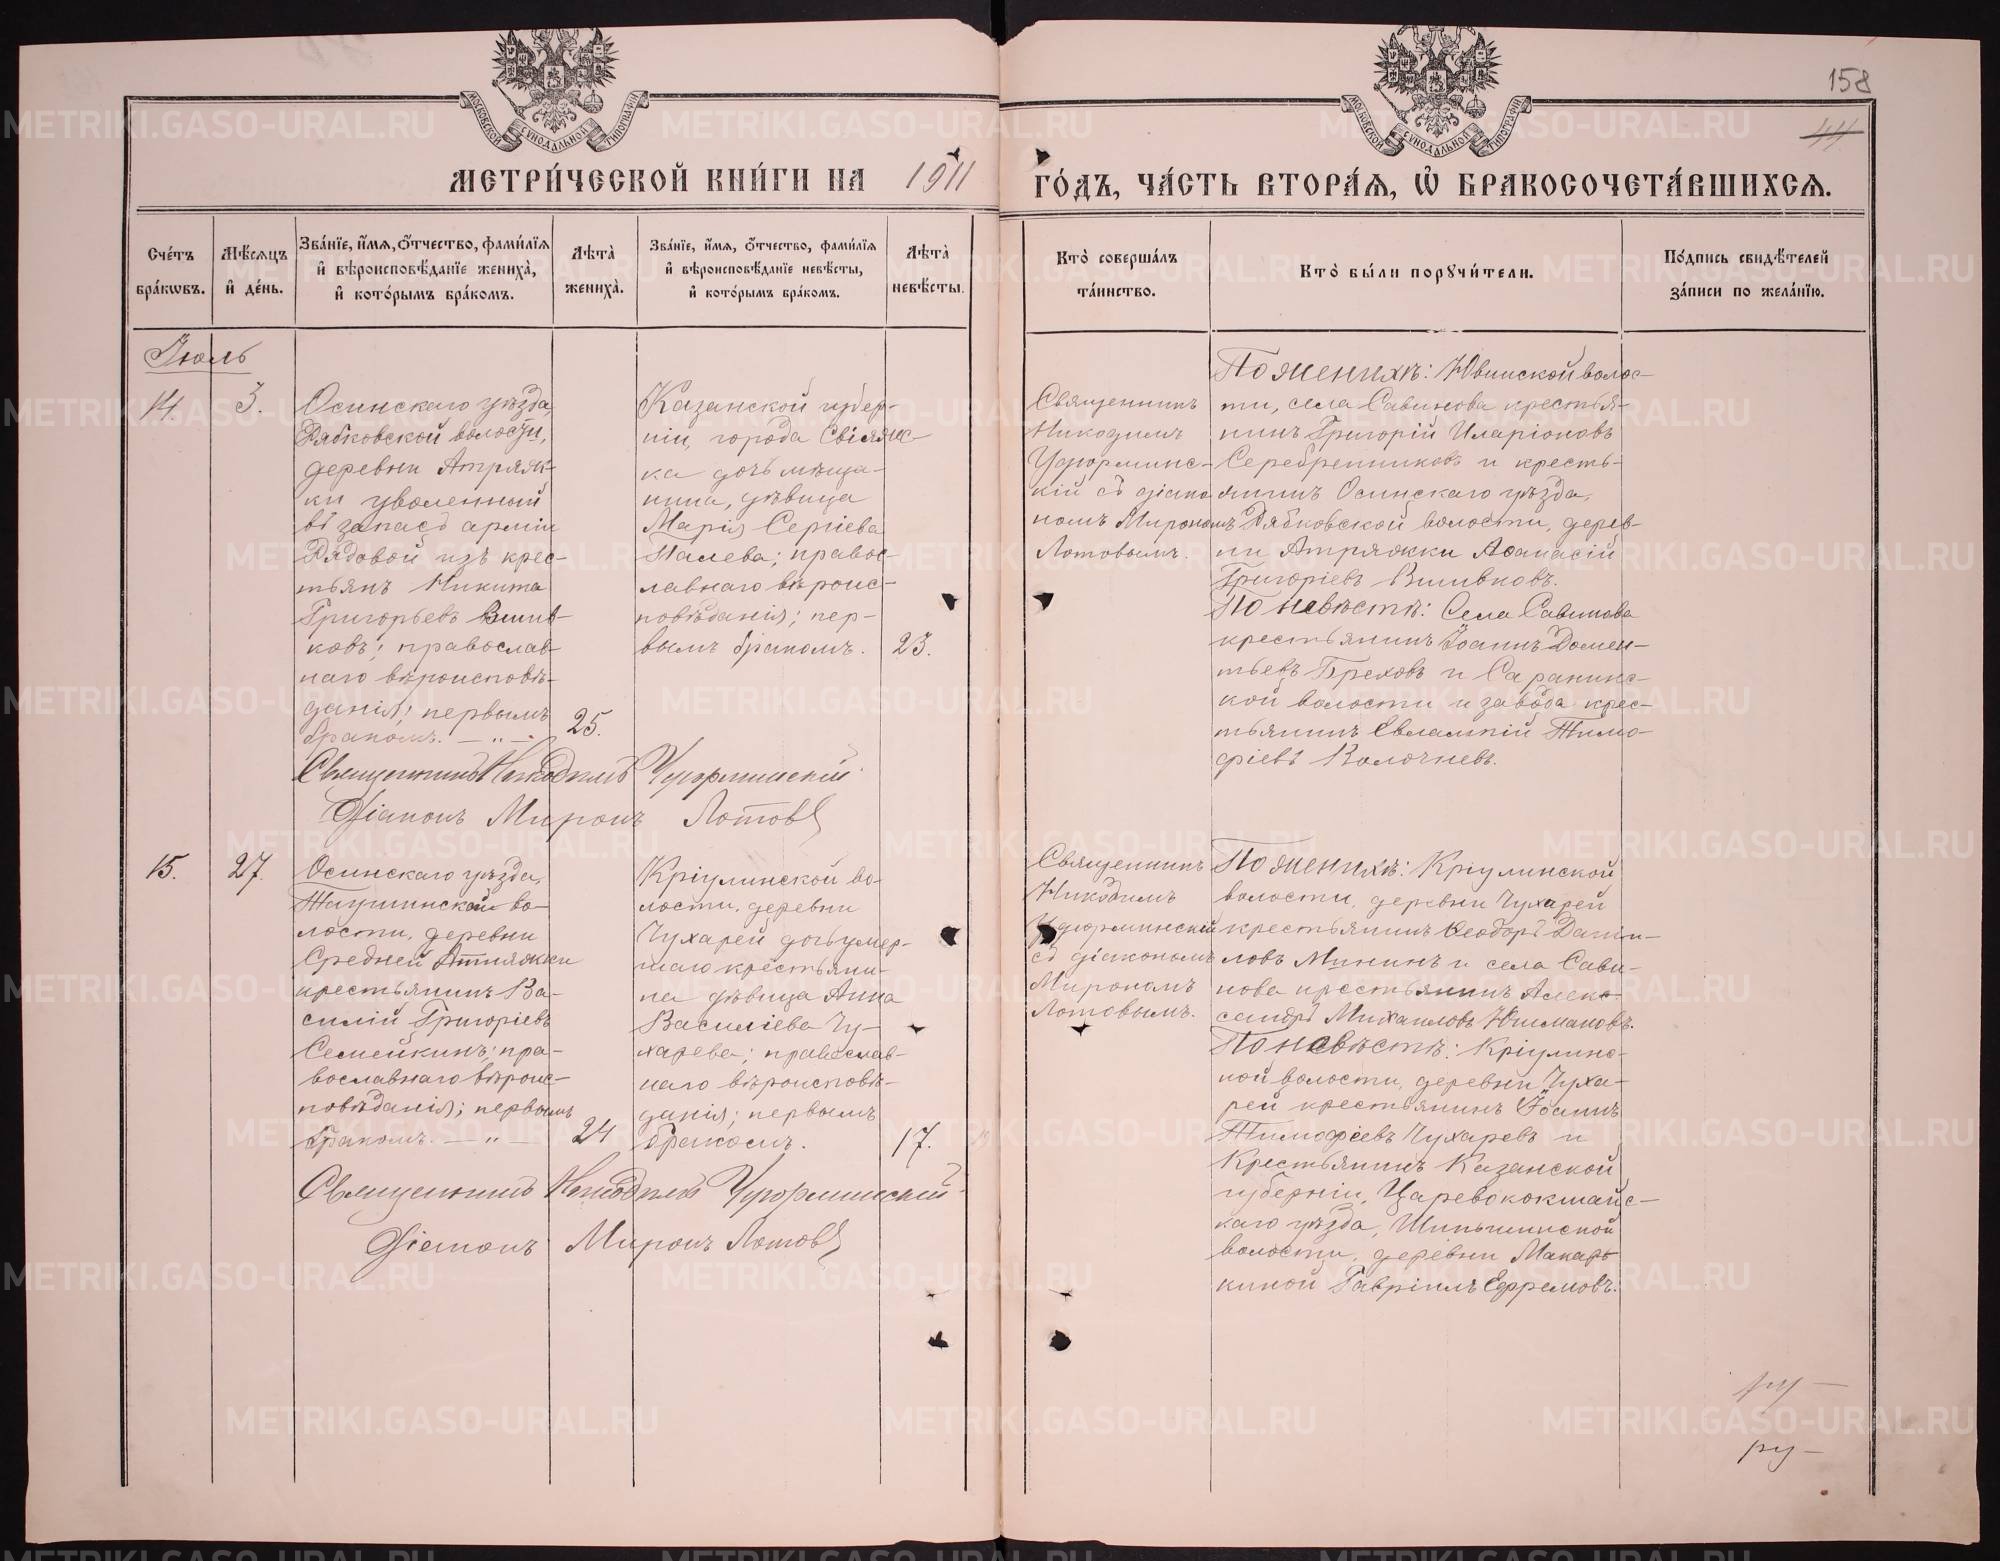 158
44
МОСКОВСКОЙ СѴНОДАЛЬНОЙ ТИПОГРАФІИ
МОСКОВСКОЙ СѴНОДАЛЬНОЙ ТИПОГРАФІИ
МЕТРИ́ЧЕСКОЙ КНИ́ГИ НА 1911 ГО́ДЪ, ЧА́СТЬ ВТОРА́Ѧ, Ѡ҆ БРАКОСОЧЕТА́ВШИХСѦ.
Сче́тъ
бра́кѡвъ.
Мѣ́сѧцъ
и҆ де́нь.
Зва́нїе, и҆́мѧ, ѻ҆́тчество, фами́лїѧ
и҆ вѣроисповѣ́данїе жениха̀,
и҆ кото́рымъ бра́комъ.
Лѣта̀
жениха̀.
Зва́нїе, и҆́мѧ, ѻ҆́тчество, фами́лїѧ
и҆ вѣроисповѣ́данїе невѣ́сты,
и҆ кото́рымъ бра́комъ.
Лѣта̀
невѣ́сты.
Кто̀ соверша́лъ
та́инство.
Кто̀ бы́ли порꙋчи́тели.
По́дпись свидѣ́телей
за́писи по жела́нїю.
Іюль
14.
3.
Осинскаго уѣзда,
Рябковской волости,
деревни Атряж-
ки уволенный
въ запасъ арміи
Рядовой изъ крес-
тьянъ Никита
Григорьевъ Вшив-
ковъ; православ-
наго вѣроисповѣ-
данія; первымъ
бракомъ. — „ —
25.
Казанской губер-
ніи, города Свіяжс-
ка дочь мѣща-
нина, дѣвица
Марія Сергіева
Палева; правос-
лавнаго вѣроис-
повѣданія; пер-
вымъ бракомъ.
23.
Священникъ
Никодимъ
Удюрминс-
кій съ діако-
номъ Мирономъ
Лотовымъ.
По женихѣ: Ювинской волос-
ти, села Савинова крестья-
нинъ Григорій Иларіоновъ
Серебренниковъ и кресть-
янинъ Осинскаго уѣзда,
Рябковской волости, дерев-
ни Атряжки Аѳанасій
Григоріевъ Вшивковъ.
По невѣстѣ: Села Савинова
крестьянинъ Іоаннъ Домен-
тьевъ Бреховъ и Саранинс-
кой волости и завода крес-
тьянинъ Евлампій Тимо-
фіевъ Колочневъ.
Священникъ Никодимъ Удюрминскій
Діаконъ Миронъ Лотовъ
15.
27.
Осинскаго уѣзда,
Таушинской во-
лости, деревни
Средней Атряжки
крестьянинъ Ва-
силій Григоріевъ
Семейкинъ; пра-
вославнаго вѣроис-
повѣданія; первымъ
бракомъ. — „ —
24
Кріулинской во-
лости, деревни
Чухарей дочь умер-
шаго крестьяни-
на дѣвица Анна
Василіева Чу-
харева; православ-
наго вѣроисповѣ-
данія; первымъ
бракомъ.
17.
Священникъ
Никодимъ
Удюрминскій
съ діакономъ
Мирономъ
Лотовымъ.
По женихѣ: Кріулинской
волости, деревни Чухарей
крестьянинъ Ѳеодоръ Дани-
ловъ Мининъ и села Сави-
нова крестьянинъ Алекс-
сандръ Михаиловъ Юшмановъ.
По невѣстѣ: Кріулинс-
кой волости, деревни Чуха-
рей крестьянинъ Іоаннъ
Тимофіевъ Чухаревъ и
Крестьянинъ Казанской
губерніи, Царевококшайс-
каго уѣзда, Шиньшинской
волости, деревни Макарь-
киной Гавріилъ Ефремовъ.
Священникъ Никодимъ Удюрминскій
Діаконъ Миронъ Лотовъ
METRIKI.GASO-URAL.RU